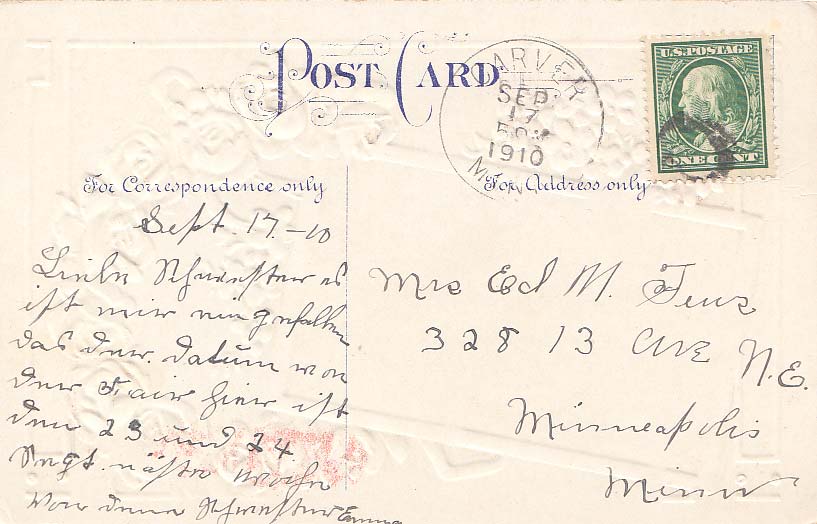 POST CARD
CARVER
SEP
17
1910
U.S. POSTAGE
ONE CENT
For Correspondence only
For Address only
Sept. 17.-10
Liebe Schwester es
ist mir eingefallen
das der Datum von
der Fair hier ist
den 23 und 24
Sept. nächste woche
Von deine Schwester Emma
Mrs Ed M.
328 13 Ave N.E.
Minneapolis
Minn